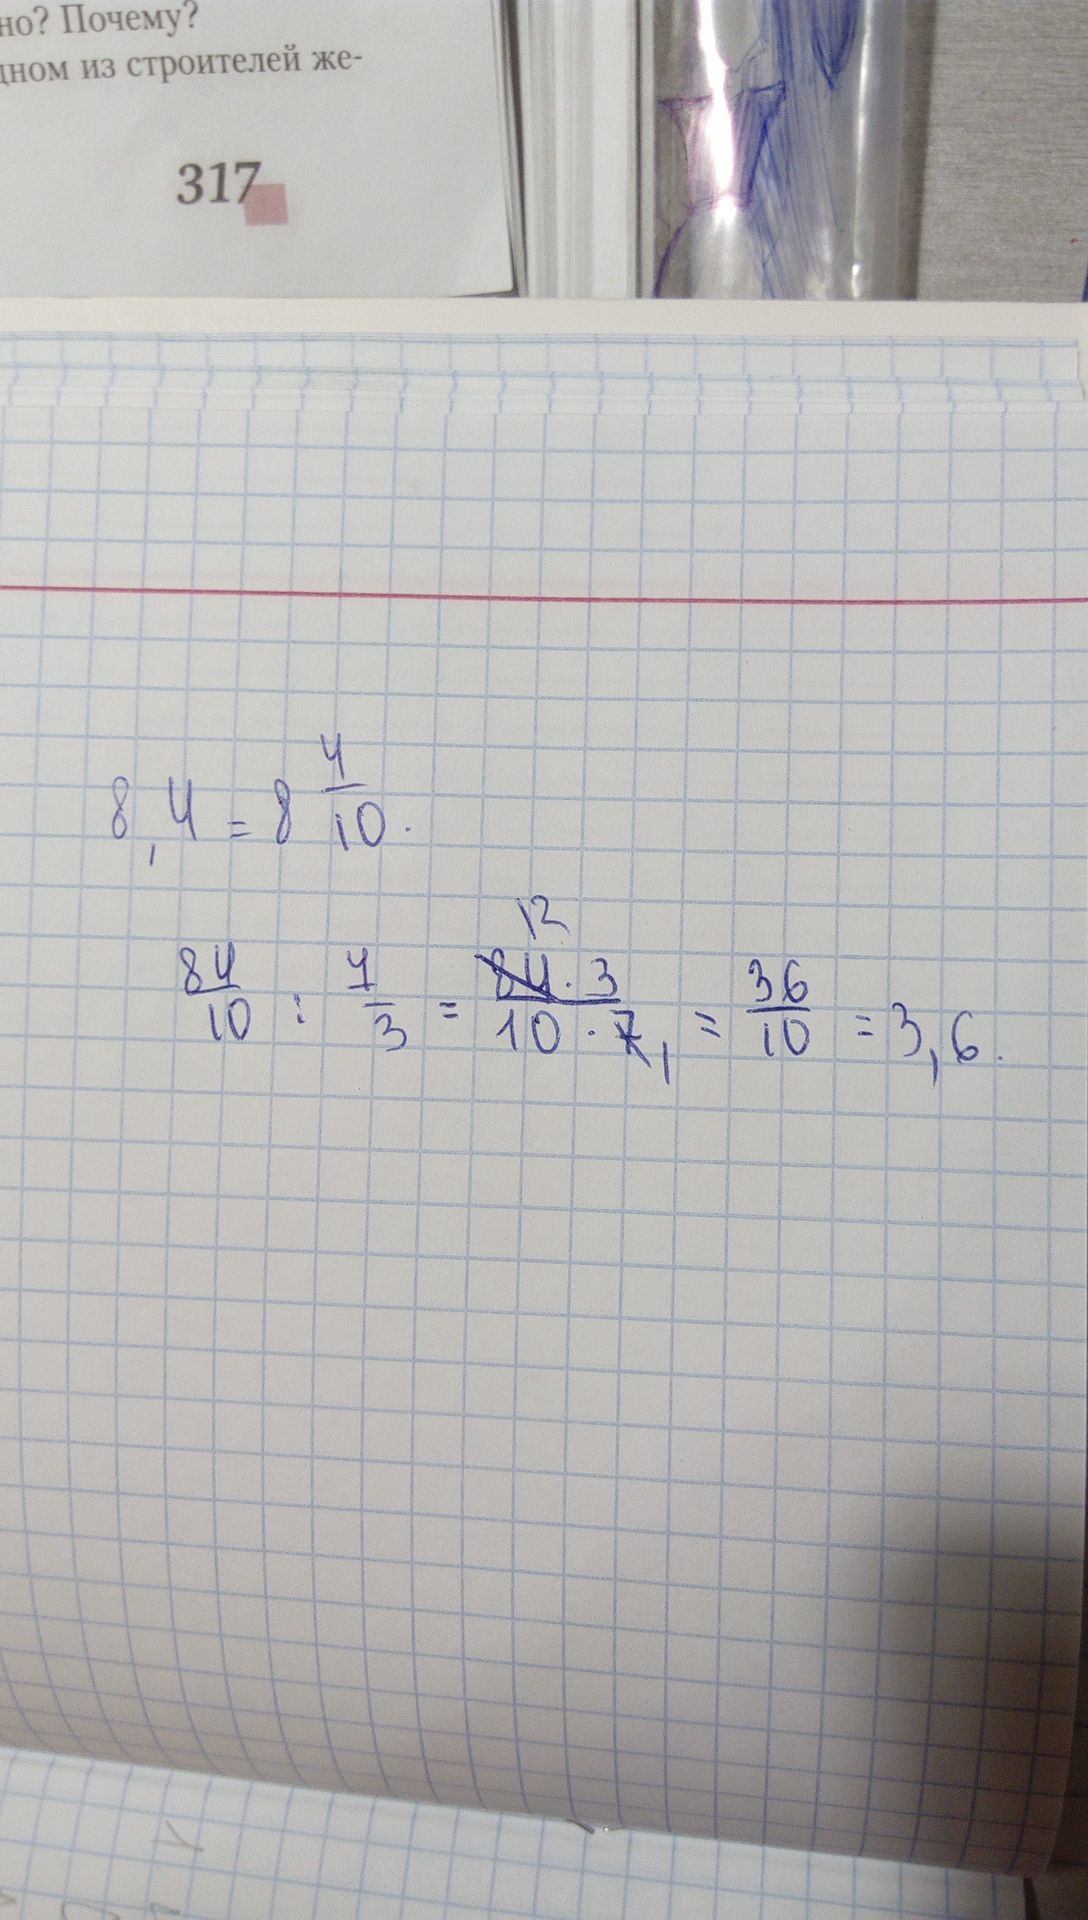 но? Почему?
дном из строителей же-
317
8,4 = 8 4/10.
84/10 : 7/3 = 84 · 3/10 · 7 = 36/10 = 3,6.
12
1